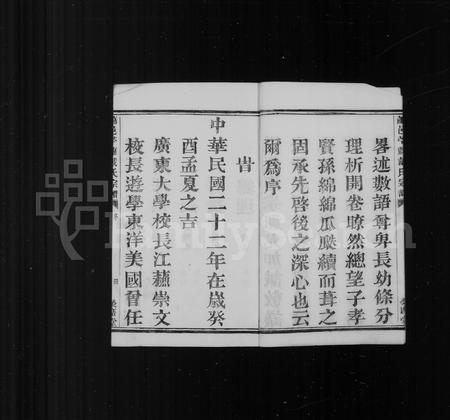 畧述數語尊與長幼條分
理析開卷瞭然總望子孝
賢孫綿綿瓜瓞續而葺之
周承先啓後之深心也云
爾為序
旹
中華民國二十二年在歲癸
酉孟夏之吉
廣東大學校長江蘓崇文
校長遊學東洋美國曾任
FamilySearch